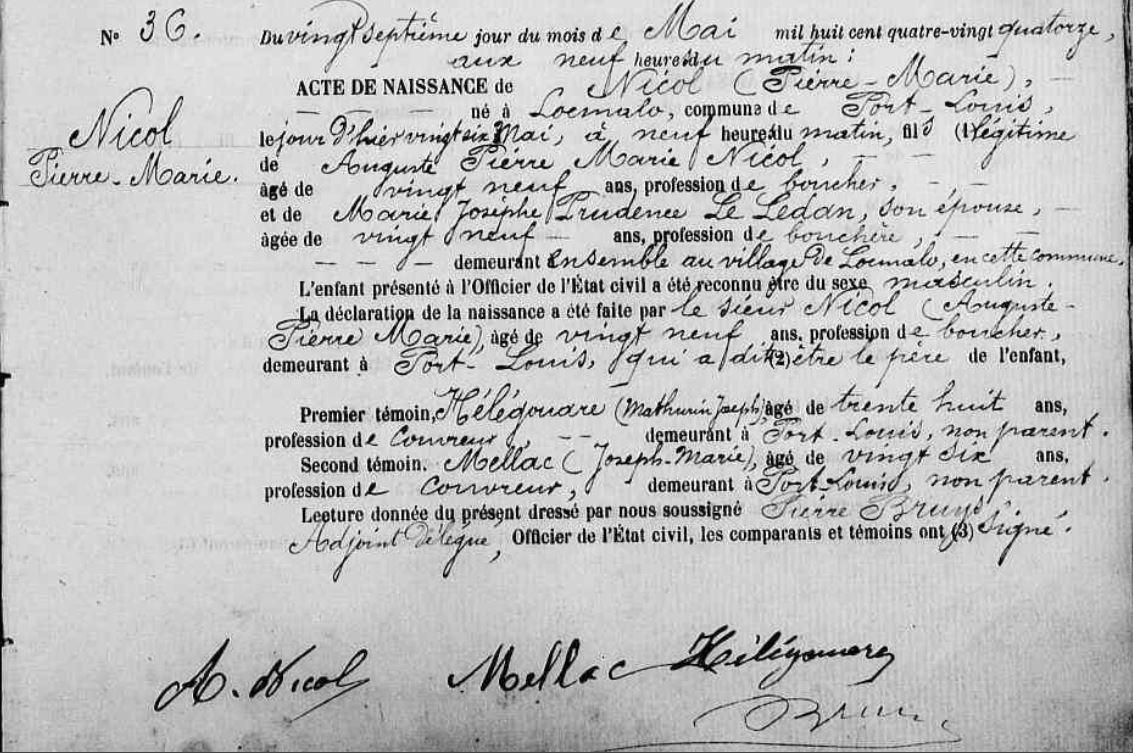 N° 36. Du vingt septième jour du mois de Mai mil huit cent quatre-vingt quatorze,
aux neuf heures du matin :
ACTE DE NAISSANCE de Nicol (Pierre-Marie), —
— — — né à Locmalo, commune de Port-Louis,
Nicol
Pierre-Marie.
le jour d'hier vingt six Mai, à neuf heures du matin, fils (1) légitime
de Auguste Pierre Marie Nicol, — —
âgé de vingt neuf ans, profession de boucher, — —
et de Marie Josèphe Prudence Le Ledan, son épouse, —
âgée de vingt neuf — ans, profession de bouchère, — —
— — — demeurant ensemble au village de Locmalo, en cette commune.
L'enfant présenté à l'Officier de l'État civil a été reconnu être du sexe masculin.
La déclaration de la naissance a été faite par le sieur Nicol (Auguste-
Pierre Marie), âgé de vingt neuf ans, profession de boucher,
demeurant à Port-Louis, qui a dit (2) être le père de l'enfant,
Premier témoin, Hélégouare (Mathurin Joseph), âgé de trente huit ans,
profession de couvreur, — — demeurant à Port-Louis, non parent.
Second témoin. Mellac (Joseph-Marie), âgé de vingt six ans,
profession de couvreur, demeurant à Port-Louis, non parent.
Lecture donnée du présent dressé par nous soussigné Pierre
Adjoint délégué, Officier de l'État civil, les comparants et témoins ont (3) signé.
A. Nicol Mellac